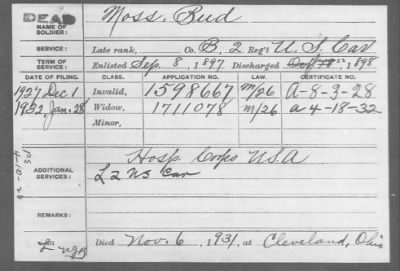 DEAD
NAME OF SOLDIER: Moss, Bud
SERVICE: Late rank, Co. B, 2 Reg't U.S. Cav
TERM OF SERVICE: Enlisted Sep. 8, 1897 Discharged 1898
DATE OF FILING. CLASS. APPLICATION NO. LAW. CERTIFICATE NO.
1927 Dec. 1 Invalid, 1598667 M/26 A-8-3-28
1932, Jan. 28 Widow, 1711078 M/26 a 4-18-32
Minor,
ADDITIONAL SERVICES: Hosp Corps USA
L 2 US Cav
REMARKS:
Died Nov. 6, 1931, at Cleveland, Ohio